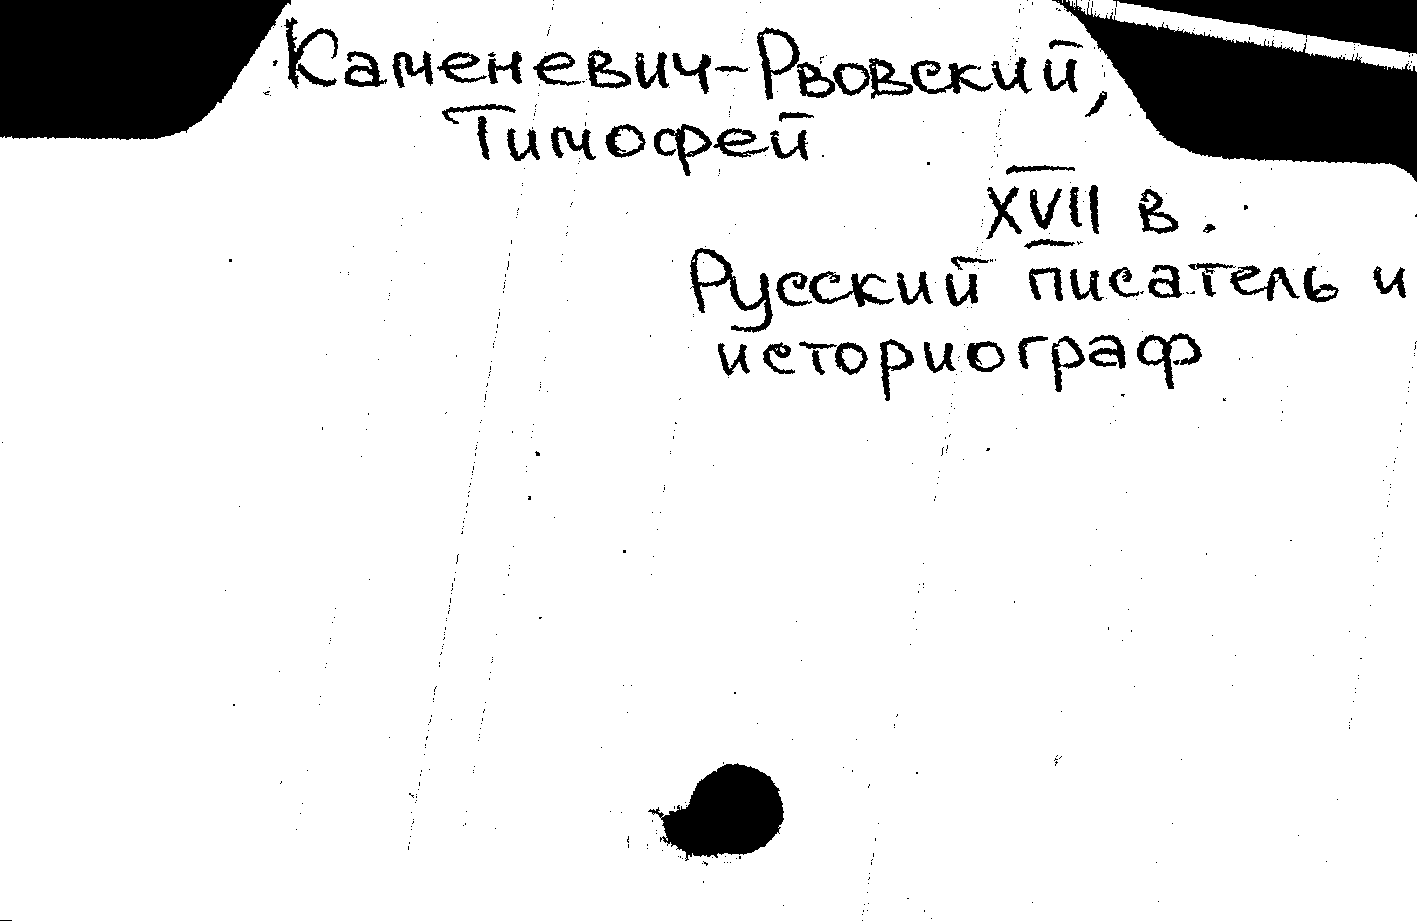 Каменевич-Рвовский,
Тимофей
XVII в.
Русский писатель и
историограф